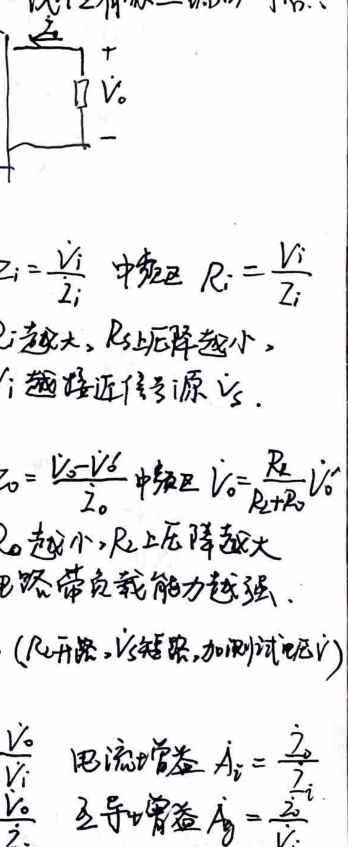 İo
+
V̇o
−
Zi = V̇i / İi 中频区 Ri = Vi / Ii
Ri越大，Rs上压降越小，
Vi越接近信号源 V̇s.
Zo = (V̇o − V̇o') / İo 中频区 V̇o = RL / (RL+Ro) V̇o'
Ro越小，RL上压降越大
电路带负载能力越强.
(RL开路，V̇s短路，加测试电压V̇)
V̇o / V̇i 电流增益 Ȧi = İo / İi
V̇o / İi 互导增益 Ȧg = İo / V̇i